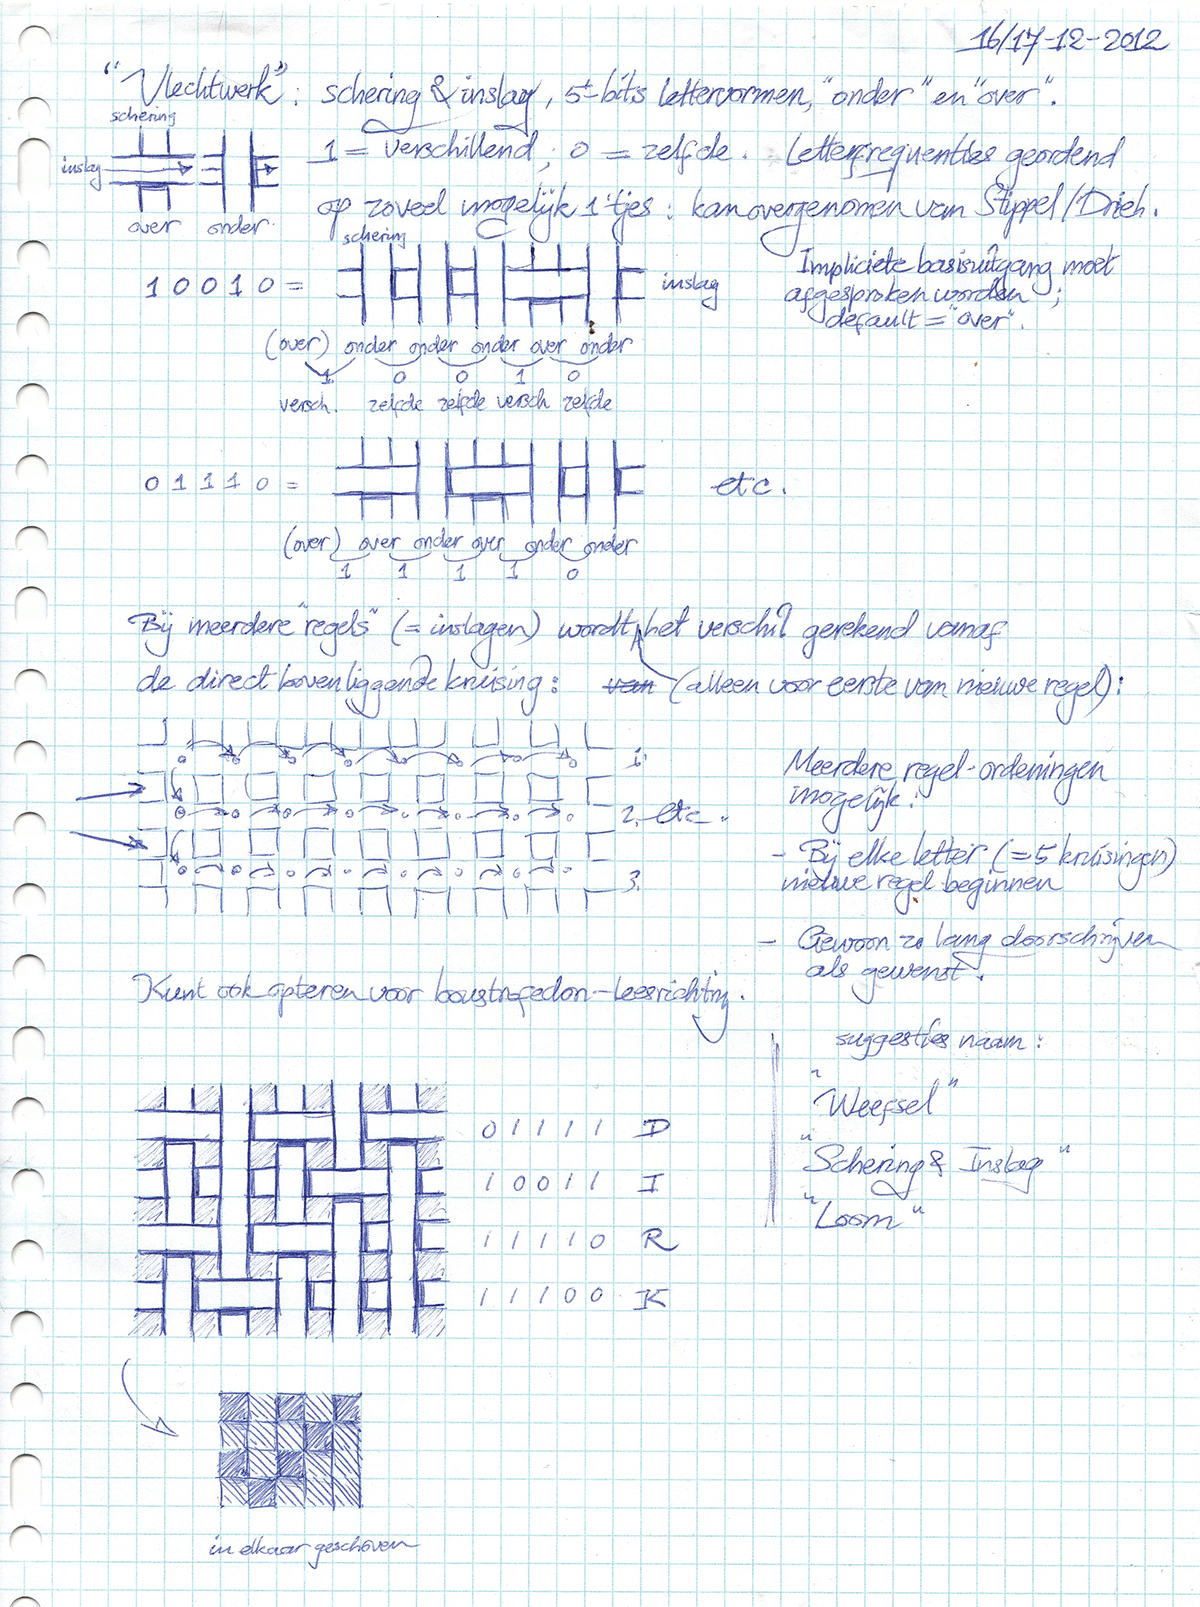 16/17-12-2012
"Vlechtwerk": schering & inslag, 5-bits lettervormen, "onder" en "over".
schering
inslag
over onder
1 = verschillend; 0 = zelfde. Letterfrequenties geordend
op zoveel mogelijk 1'tjes: kan overgenomen van Stippel/Drieh.
schering
1 0 0 1 0 =
inslag
(over) onder onder onder over onder
1 0 0 1 0
versch. zelfde zelfde versch zelfde
Impliciete basisuitgang moet
afgesproken worden;
default = "over".
0 1 1 1 0 =
etc.
(over) over onder over onder onder
1 1 1 1 0
Bij meerdere "regels" (= inslagen) wordt het verschil gerekend vanaf
de direct bovenliggende kruising: van (alleen voor eerste van nieuwe regel):
1.
2. etc.
3.
Meerdere regel-ordeningen
mogelijk:
- Bij elke letter (= 5 kruisingen)
nieuwe regel beginnen
- Gewoon zo lang doorschrijven
als gewenst.
Kunt ook opteren voor boustrofedon-leesrichting.
suggesties naam:
"Weefsel"
"Schering & Inslag"
"Loom"
0 1 1 1 1 D
1 0 0 1 1 I
1 1 1 1 0 R
1 1 1 0 0 K
in elkaar geschoven